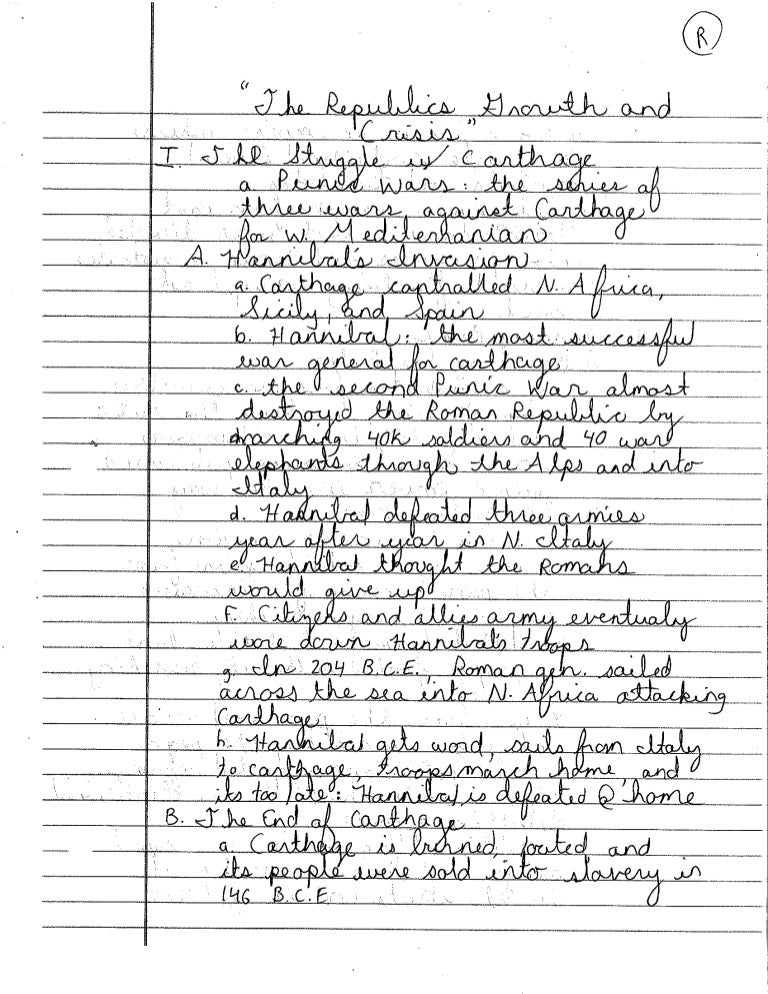 R
"The Republics Growth and
Crisis"
I. The Struggle w/ Carthage
a. Punic Wars: the series of
three wars against Carthage
for w. Mediterranian
A. Hannibal's Invasion
a. Carthage controlled N. Africa,
Sicily, and Spain
b. Hannibal: the most successful
war general for carthage
c. the second Punic War almost
destroyed the Roman Republic by
marching 40K soldiers and 40 war
elephants through the Alps and into
Italy
d. Hannibal defeated three armies
year after year in N. Italy
e. Hannibal thought the Romans
would give up
F. Citizens and allies army eventualy
wore down Hannibal's troops
g. In 204 B.C.E., Roman gen. sailed
across the sea into N. Africa attacking
Carthage
h. Hannibal gets word, sails from Italy
to carthage, troops march home, and
its too late: Hannibal is defeated @ home
B. The End of Carthage
a. Carthage is burned, and
its people were sold into slavery in
146 B.C.E.